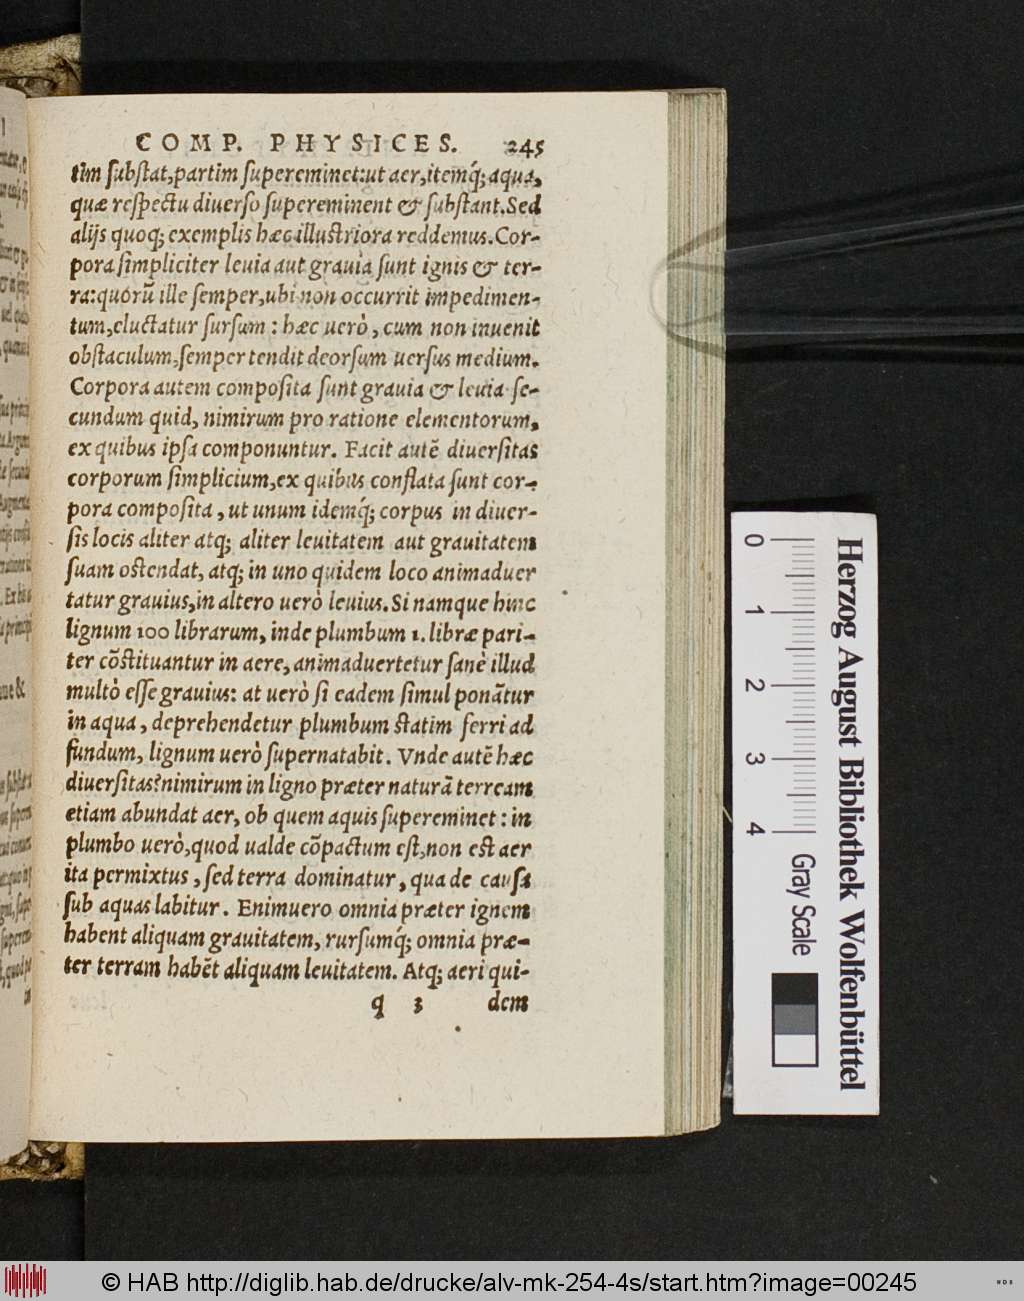 COMP. PHYSICES. 245
tim ſubſtat,partim ſupereminet:ut aer,itemq́;aqua,
quæ reſpectu diuerſo ſupereminent & ſubſtant.Sed
alijs quoq; exemplis hæc illuſtriora reddemus.Cor-
pora ſimpliciter leuia aut grauia ſunt ignis & ter-
ra:quorũ ille ſemper,ubi non occurrit impedimen-
tum,eluctatur ſurſum : hæc uerò , cum non inuenit
obſtaculum,ſemper tendit deorſum uerſus medium.
Corpora autem compoſita ſunt grauia & leuia ſe-
cundum quid, nimirum pro ratione elementorum,
ex quibus ipſa componuntur. Facit autẽ diuerſitas
corporum ſimplicium,ex quibus conflata ſunt cor-
pora compoſita , ut unum idemq́; corpus in diuer-
ſis locis aliter atq; aliter leuitatem aut grauitatem
ſuam oſtendat, atq; in uno quidem loco animaduer
tatur grauius,in altero uerò leuius.Si namque hinc
lignum 100 librarum, inde plumbum 1. libræ pari-
ter cõſtituantur in aere, animaduertetur ſanè illud
multò eſſe grauius: at uerò ſi eadem ſimul ponãtur
in aqua , deprehendetur plumbum ſtatim ferri ad
fundum, lignum uerò ſupernatabit. Vnde autẽ hæc
diuerſitas?nimirum in ligno præter naturã terream
etiam abundat aer, ob quem aquis ſupereminet : in
plumbo uerò,quod ualde cõpactum eſt,non eſt aer
ita permixtus , ſed terra dominatur , qua de cauſa
ſub aquas labitur. Enimuero omnia præter ignem
habent aliquam grauitatem, rurſumq́; omnia præ-
ter terram habẽt aliquam leuitatem. Atq; aeri qui-
q 3 dem
0 1 2 3 4 Gray Scale
Herzog August Bibliothek Wolfenbüttel
© HAB http://diglib.hab.de/drucke/alv-mk-254-4s/start.htm?image=00245